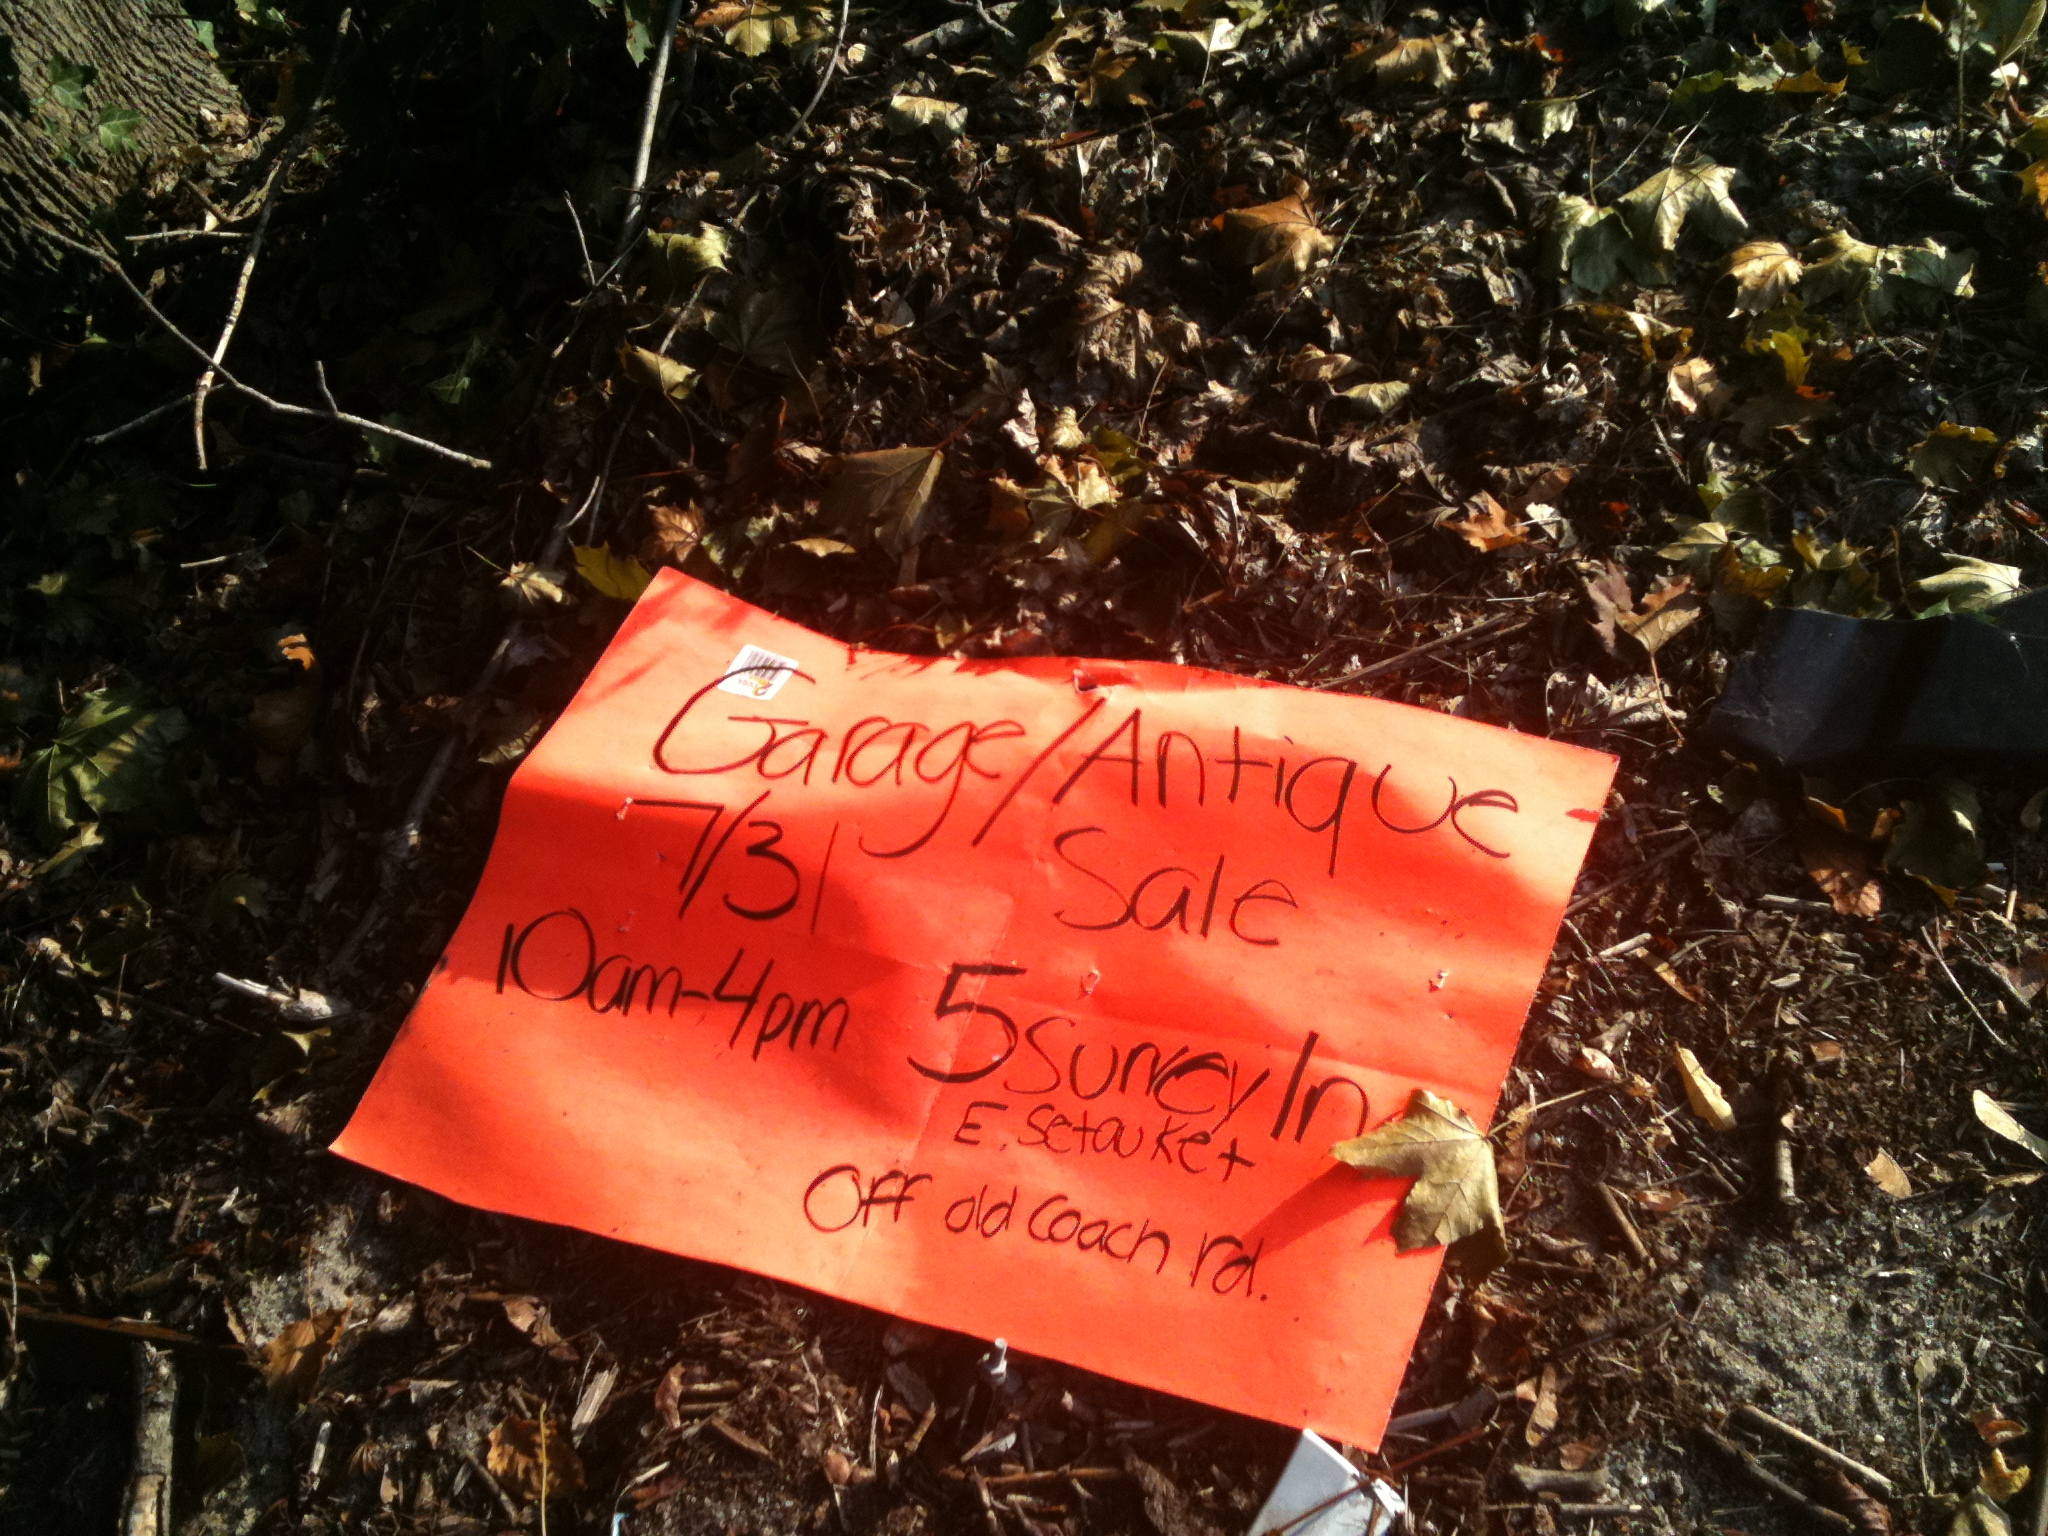 Garage/Antique
7/31 Sale
10am-4pm 5 Surrey ln
E. Setauket
Off old Coach rd.